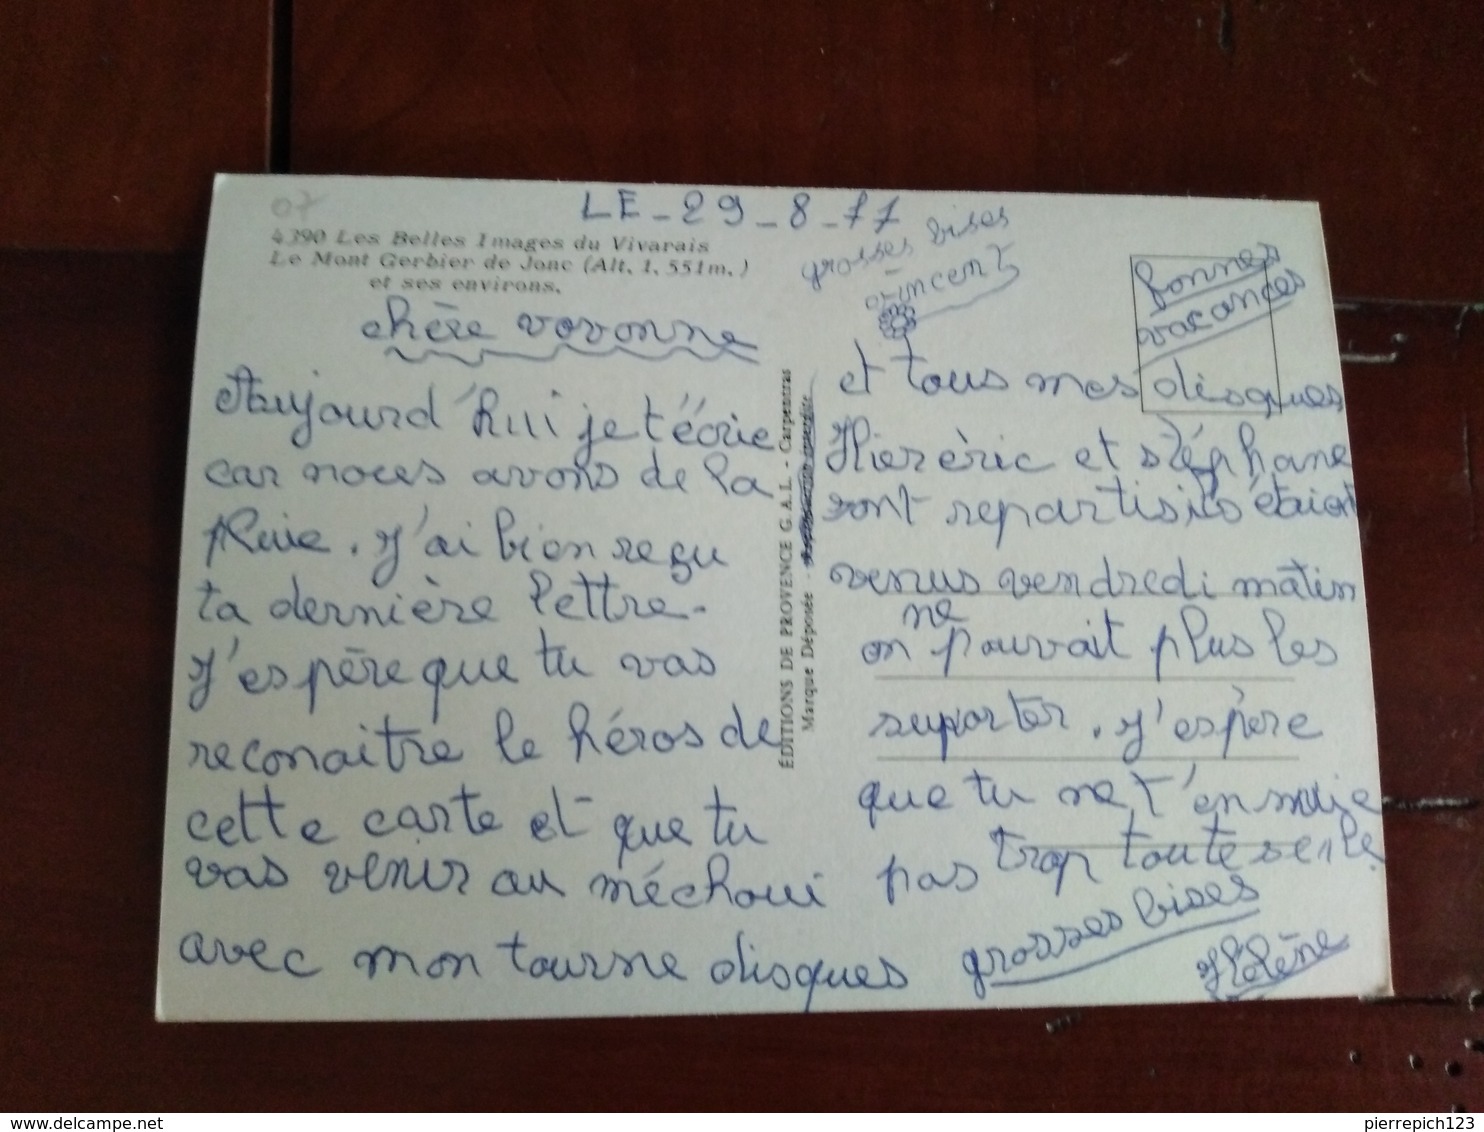 07
LE - 29 - 8 - 77
4390 Les Belles Images du Vivarais
Le Mont Gerbier de Jonc (Alt. 1.551m.)
et ses environs.
grosses bises
vincent
bonnes
vacances
chère vovonne
Aujourd'hui je t'écrie
car nous avons de la
pluie. J'ai bien reçu
ta dernière lettre.
J'espère que tu vas
reconaitre le héros de
cette carte et que tu
vas venir au méchoui
avec mon tourne disques
ÉDITIONS DE PROVENCE G.A.L. - Carpentras
Marque Déposée -
et tous mes disques
Hier èric et stéphane
sont repartis ils étaient
venus vendredi matin
on ne pouvait plus les
suporter. J'espère
que tu ne t'ennuie
pas trop toute seule
grosses bises
Hélène
pierrepich123